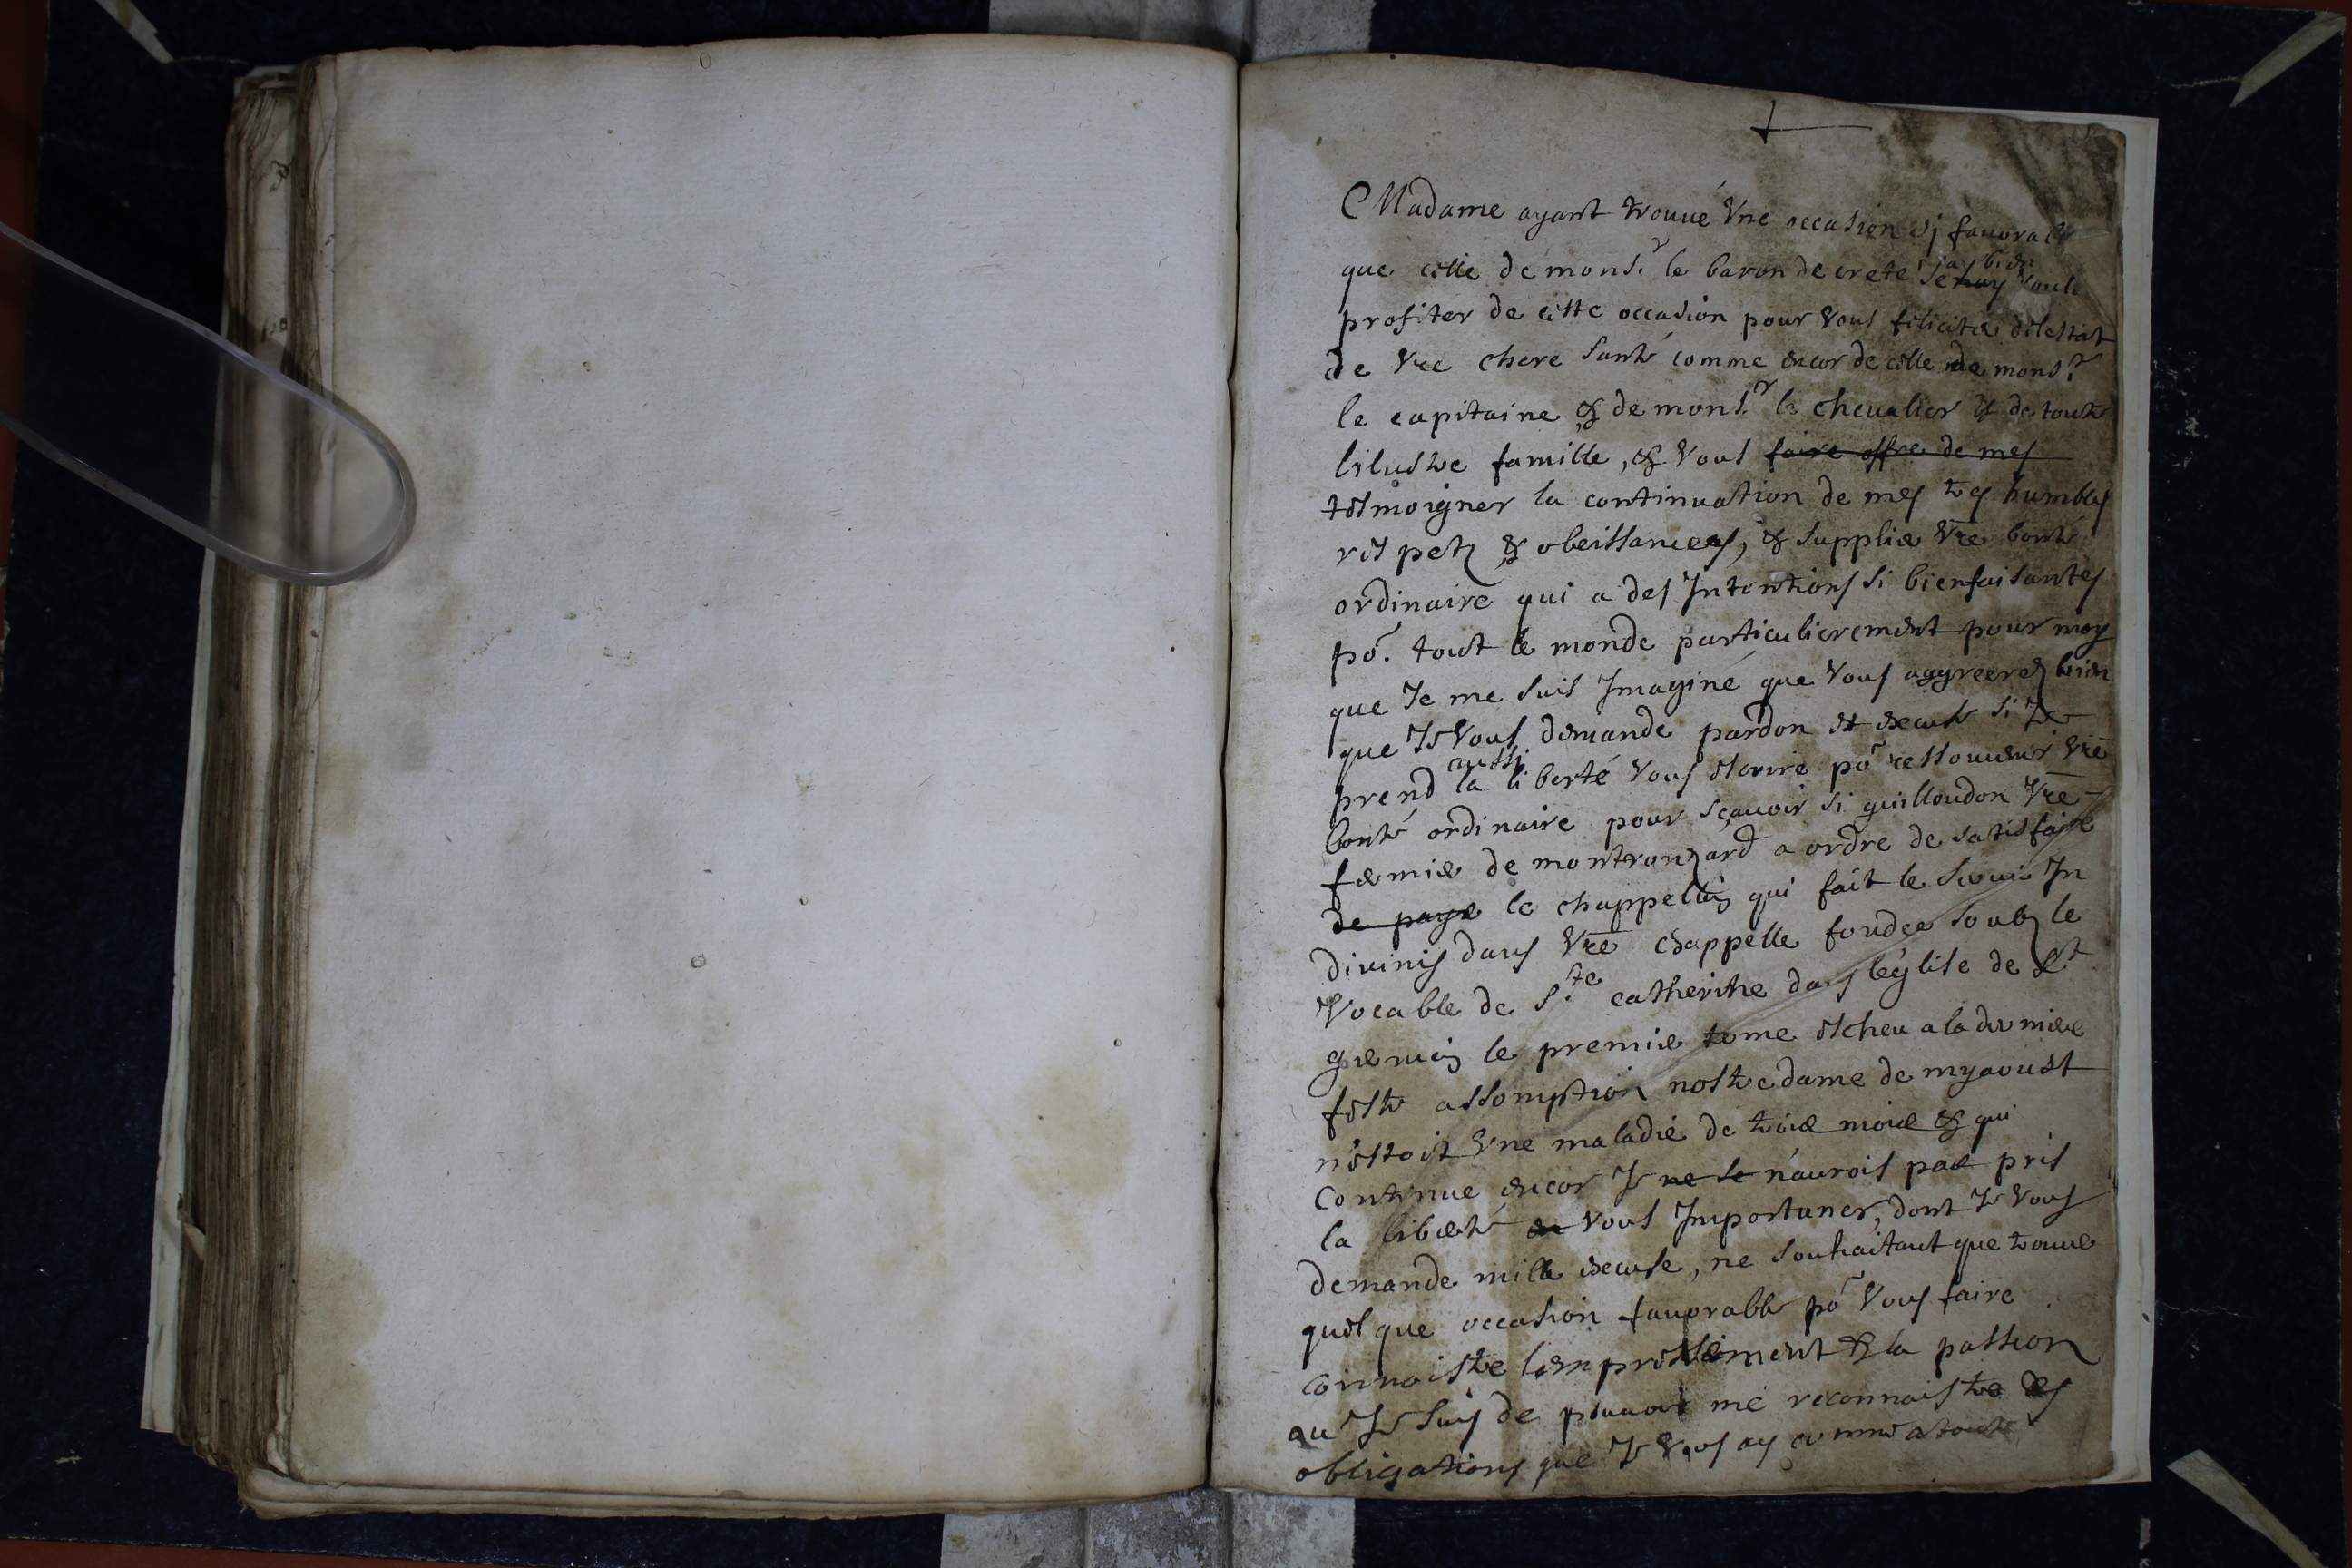 Madame ayant trouué Vne occasion si fauorable
que celle de mons.r le baron de crete Je ay bien voulu
profiter de cette occasion pour vous feliciter de lestat
de vre chere santé comme encor de celle de mons.r
le capitaine & de mons.r le cheualier & de toute
lilustre famille, & vous faire offre de mes
tesmoigner la continuation de mes tres humbles
respetz & obeissances, & supplier vre bonté
ordinaire qui a des Jntentions si bienfaisantes
po.r tout le monde particulierement pour moy
que Je me suis Jmaginé que vous aggreerez bien
que Je vous demande pardon et excuse si Je
prend aussi la liberté vous escrire po.r ressouuenir vre
bonté ordinaire pour sçauoir si guilloudon vre
fermier de montronzard a ordre de satisfaire
de payer le chappellain qui fait le seruice Jn
diuinis dans vre chappelle fondee soubz le
Vocable de S.te catherine dans léglise de St
germain le premier terme escheu a la derniere
feste assomption nostre dame de myaoust
n'estoit Vne maladie de trois mois & qui
Continue encor Je ne le n'aurois pas pris
la liberté de vous Jmportuner, dont Je vous
demande mille excuse, ne souhaitant que trouuer
quelque occasion fauorable po.r vous faire
connoistre lempressement & la passion
ou Je suis de pouuoir me reconnaistre des
obligations que Je vous ay comme a toute